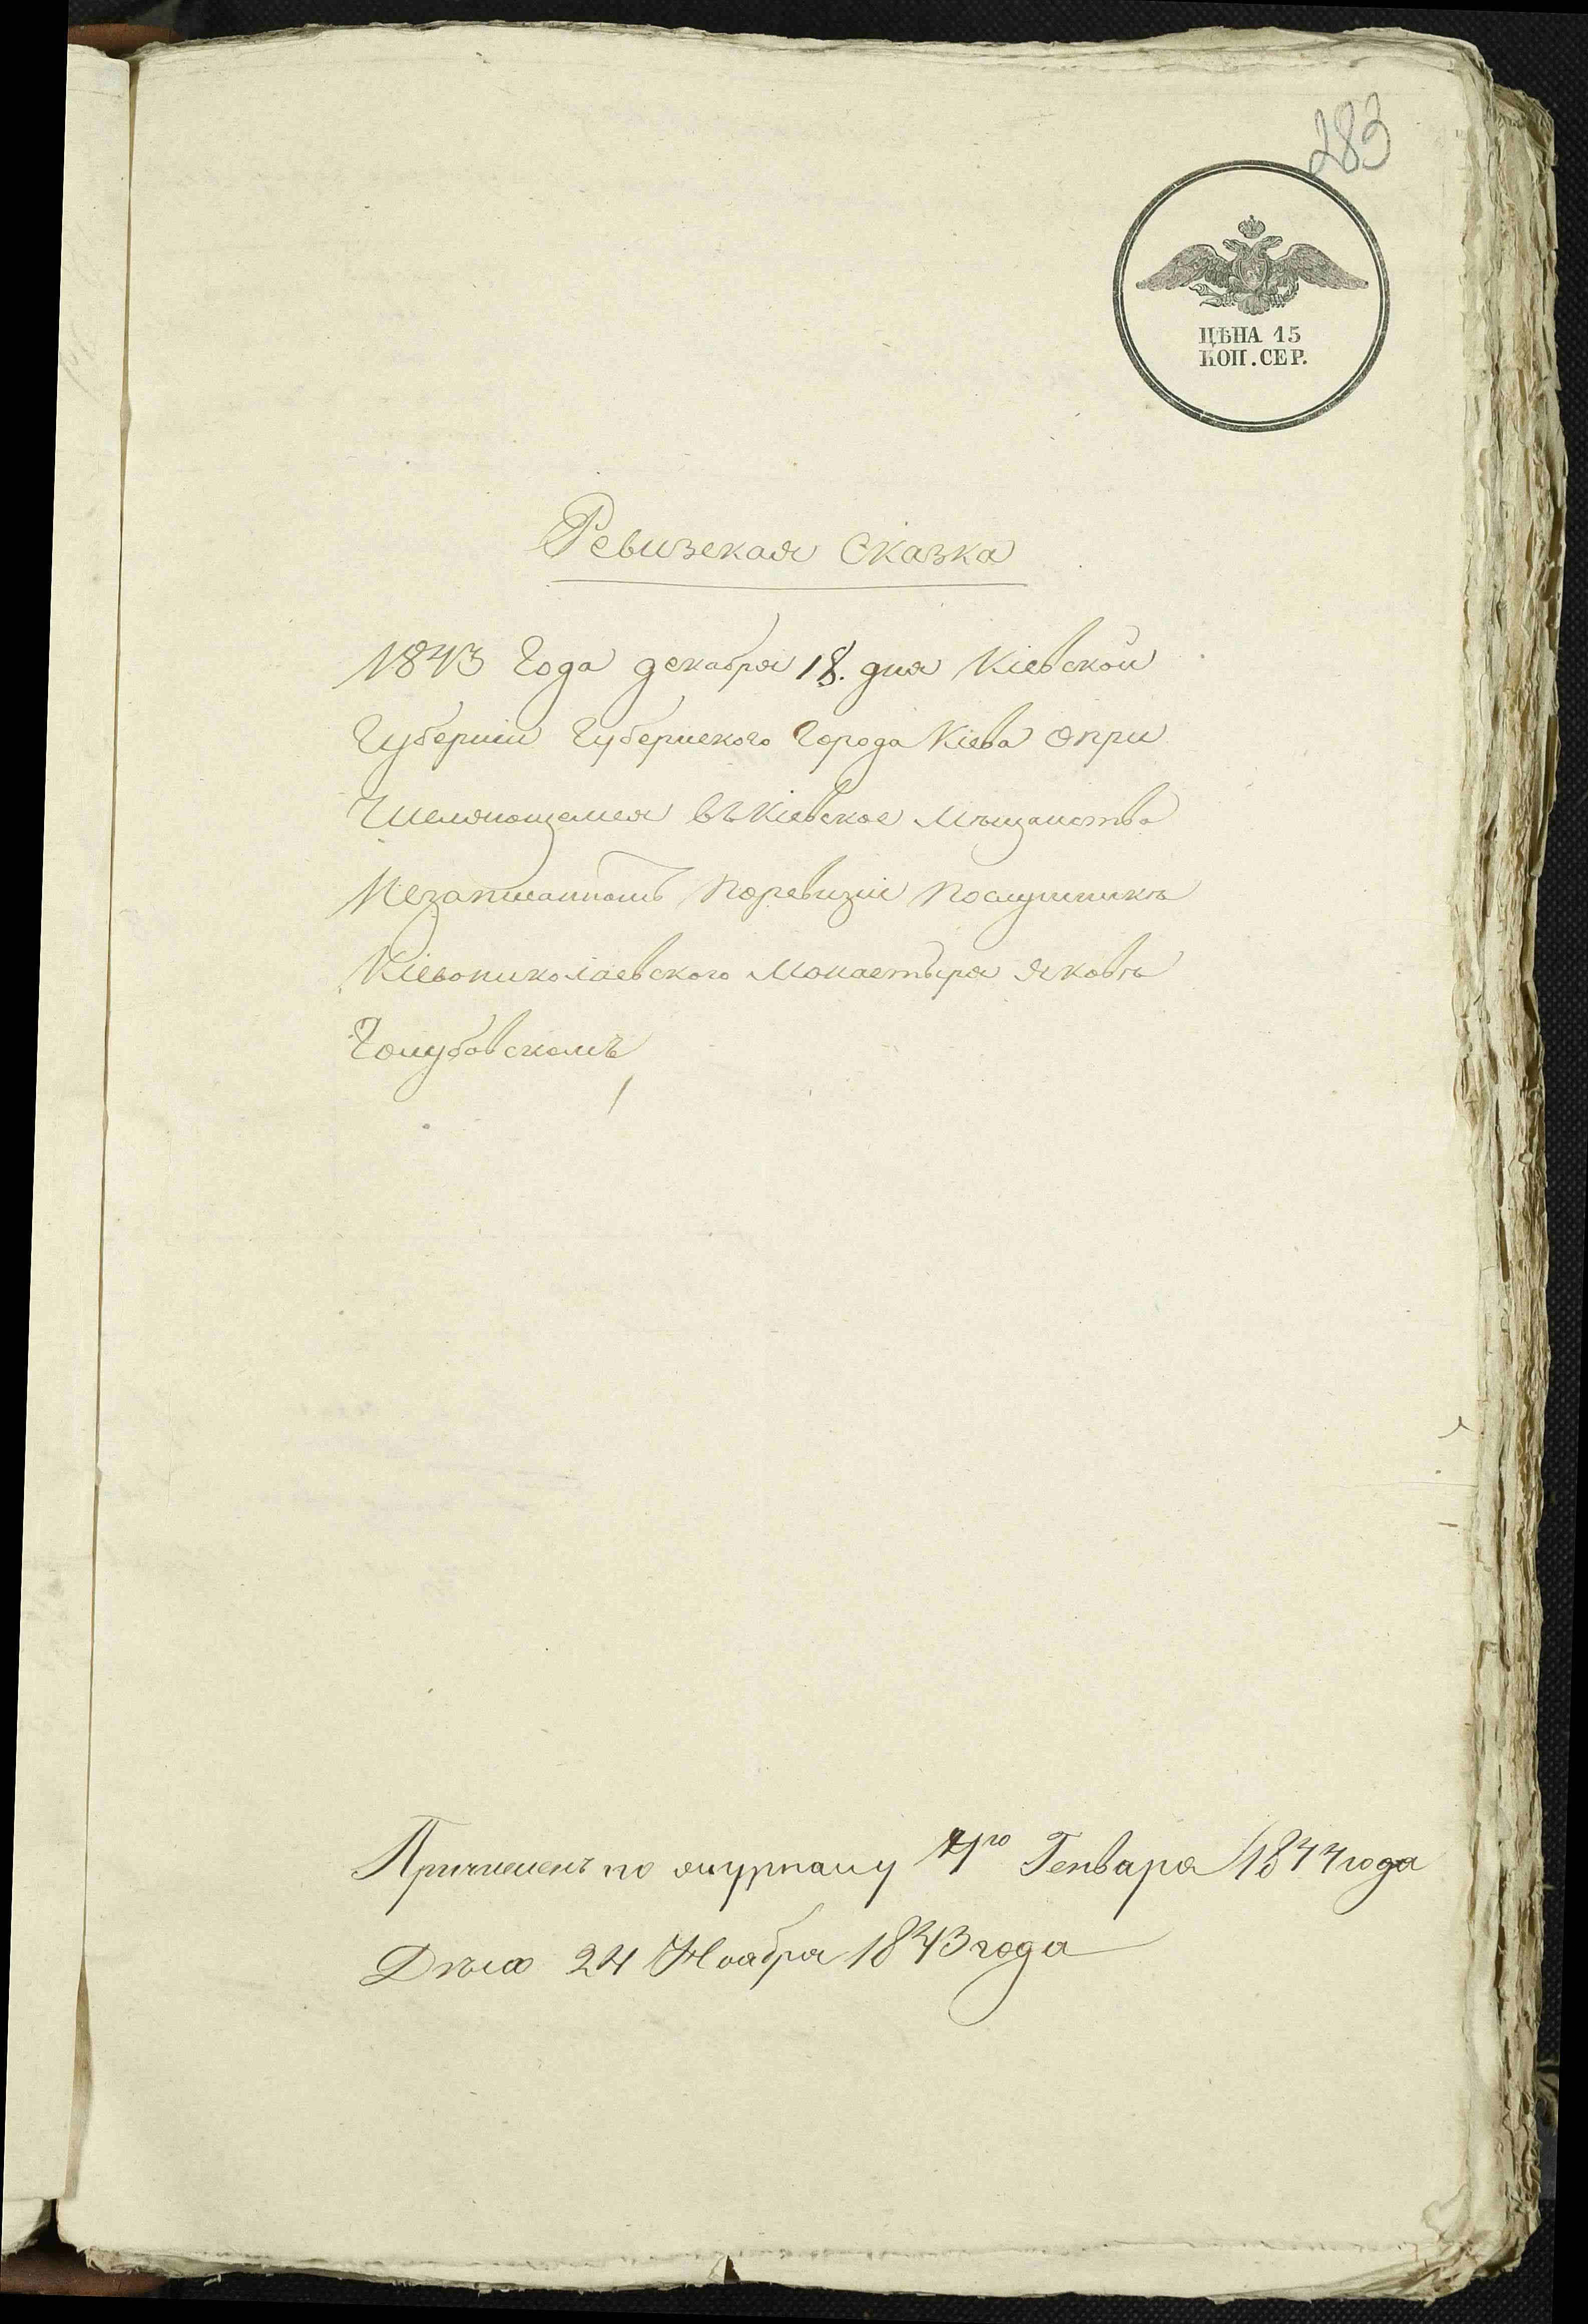 283
ЦѢНА 15
КОП. СЕР.
Ревизская Сказка
1843 Года декабря 18. дня Кіевской
Губерніи Губернского Города Кіева Опри
Числяющемся въ Кіевское Мѣщанство
Незаписанномъ Поревизіи Послушникѣ
Кіевониколаевского Монастыря Яковѣ
Голубовскомъ
Причисленъ по журналу 4го Генваря 1844 года
Дѣло 24 Ноября 1843 года